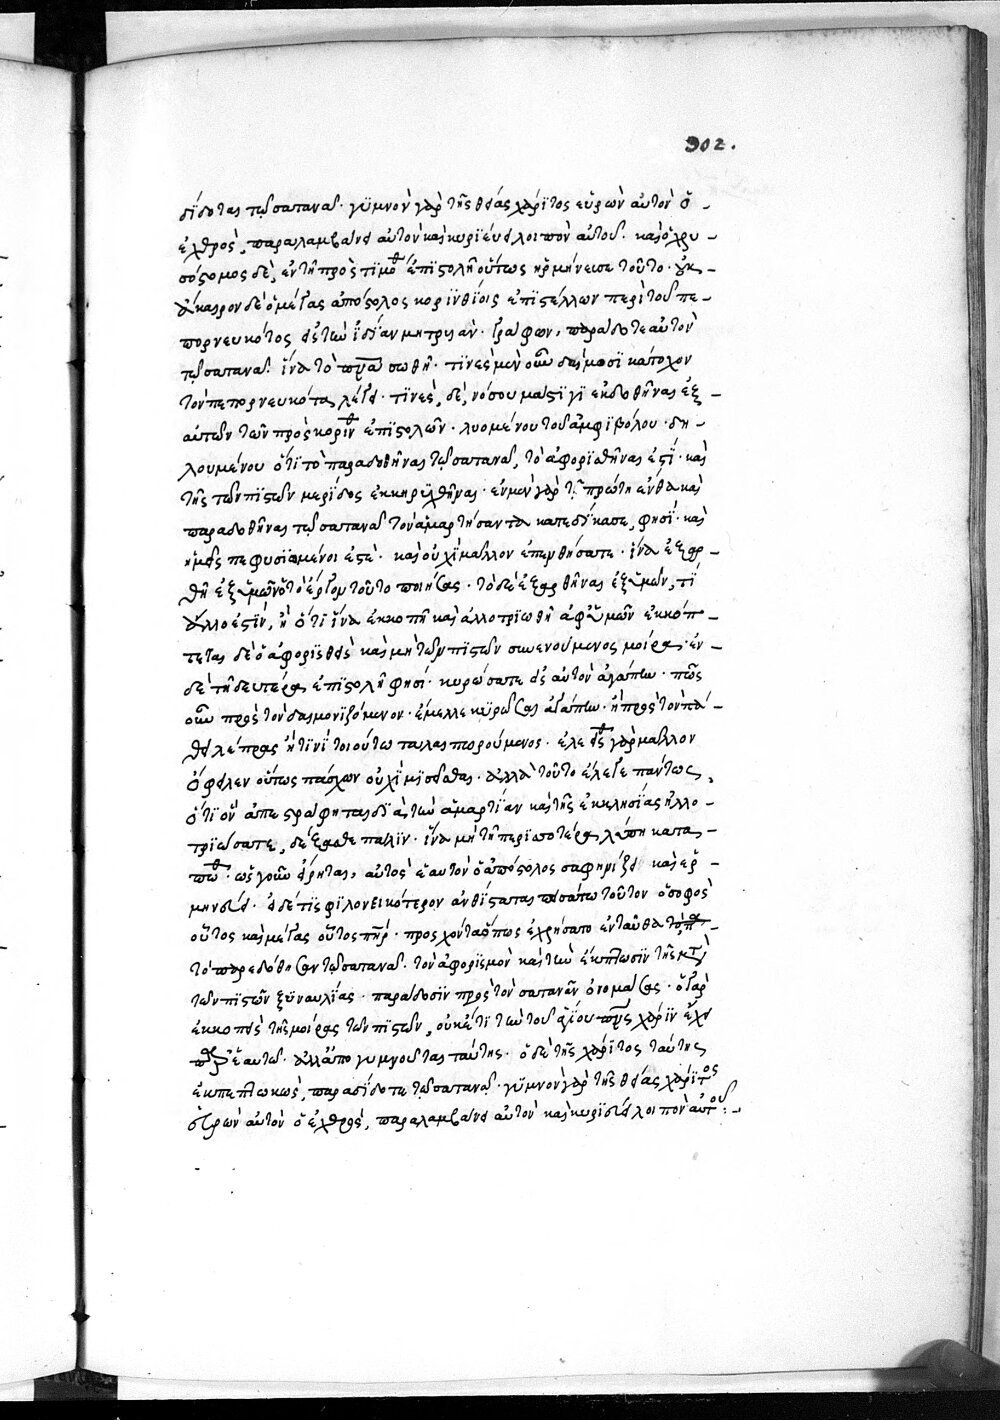 302.
δίδοται τῷ σατανᾷ· γυμνὸν γὰρ τῆς θείας χάριτος εὑρὼν αὐτὸν ὁ
ἐχθρὸς, παραλαμβάνει αὐτὸν καὶ κυριεύει λοιπὸν αὐτοῦ. καὶ ὁ χρυ-
σόστομος δὲ, ἐν τῇ πρὸς τιμόθ ἐπιστολῇ οὕτως ἡρμήνευσε τοῦτο· οὐκ
ἄκαιρον δὲ ὁ μέγας ἀπόστολος κορινθίοις ἐπιστέλλων περὶ τοῦ πε-
πορνευκότος εἰς τὴν ἰδίαν μητρυιὰν· γράφων, παράδοτε αὐτὸν
τῷ σατανᾷ ἵνα τὸ πνα σωθῇ· τινὲς μὲν οὖν δαίμοσι κάτοχον
τὸν πεπορνευκότα λέγει· τινὲς, δὲ, νόσου μάστιγι ἐκδοθῆναι ἐξ
αὐτῶν τῶν πρὸς κορινθ ἐπιστολῶν· λυομένου τοῦ ἀμφιβόλου· δη-
λουμένου ὅτι τὸ παραδοθῆναι τῷ σατανᾷ, τὸ ἀφορισθῆναι ἐστί· καὶ
τῆς τῶν πιστῶν μερίδος ἐκκηρυχθῆναι· ἐν μὲν γὰρ τῇ πρώτῃ ἔνθα καὶ
παραδοθῆναι τῷ σατανᾷ τὸν ἁμαρτήσαντα κατεδίκασε, φησί· καὶ
ἡμεῖς πεφυσιωμένοι ἐστὲ· καὶ οὐχὶ μᾶλλον ἐπενθήσατε· ἵνα ἐξαρ-
θῇ ἐξ ὑμῶν ὁ τὸ ἔργον τοῦτο ποιήσας· τὸ δὲ ἐξαρθῆναι ἐξ ὑμῶν, τί
ἄλλο ἐστὶν, ἢ ὅτι ἵνα ἐκκοπῇ καὶ ἀλλοτριωθῇ ἀφ' ὑμῶν ἐκκόπ-
τεται δὲ ὁ ἀφορισθεὶς καὶ μὴ τῶν πιστῶν συνενούμενος μοίρᾳ· ἐν
δὲ τῇ δευτέρᾳ ἐπιστολῇ φησί· κυρώσατε εἰς αὐτὸν ἀγάπην· πῶς
οὖν πρὸς τὸν δαιμονιζόμενον· ἔμελλε κυρῶσαι ἀγάπην· ἢ πρὸς τὸν πά-
θει λέπρας ἤ τινι τοιούτω ταλαιπωρούμενος· ἐλεεῖσθ γὰρ μᾶλλον
ὄφειλεν οὕτως πάσχων οὐχὶ μισεῖσθαι. ἀλλὰ τοῦτο ἔλεγε πάντως,
ὅτι ὃν ἀπεστράφητε διὰ τὴν ἁμαρτίαν καὶ τῆς ἐκκλησίας ἠλλο-
τριώσατε, δέξασθε πάλιν· ἵνα μὴ τῇ περισσοτέρᾳ λύπῃ καταπ-
ποθ· ὡς γοῦν εἴρηται, αὐτὸς ἑαυτὸν ὁ ἀπόστολος σαφηνίζει καὶ ἑρ-
μηνεύει· εἰ δέ τις φιλονεικότερον ἀνθίσταται πεισάτω τοῦτον ὁ σοφὸς
οὗτος καὶ μέγας οὗτος πὴρ· προσχόντα ὅπως ἐχρήσατο ἐνταῦθα
τὸ παρεδόθησαν τῷ σατανᾷ. τὸν ἀφορισμὸν καὶ τὴν ἔκπτωσιν τῆς μετὰ
τῶν πιστῶν ξυναυλίας· παράδοσιν πρὸς τὸν σατανᾶν ὀνομάσας· ὁ γὰρ
ἐκκοπεὶς τῆς μοίρας τῶν πιστῶν, οὐκέτι τὴν τοῦ ἁγίου πνς χάριν ἔχει
ἑαυτῷ· ἀλλ' ἀπογυμνοῦται ταύτης· ὁ δὲ τῆς χάριτος ταύτης
ἐκπεπτωκὼς, παραδίδοται τῷ σατανᾷ· γυμνὸν γὰρ τῆς θείας χάριτος
εὑρὼν αὐτὸν ὁ ἐχθρὸς, παραλαμβάνει αὐτὸν καὶ κυριεύει λοιπὸν αὐτοῦ:-